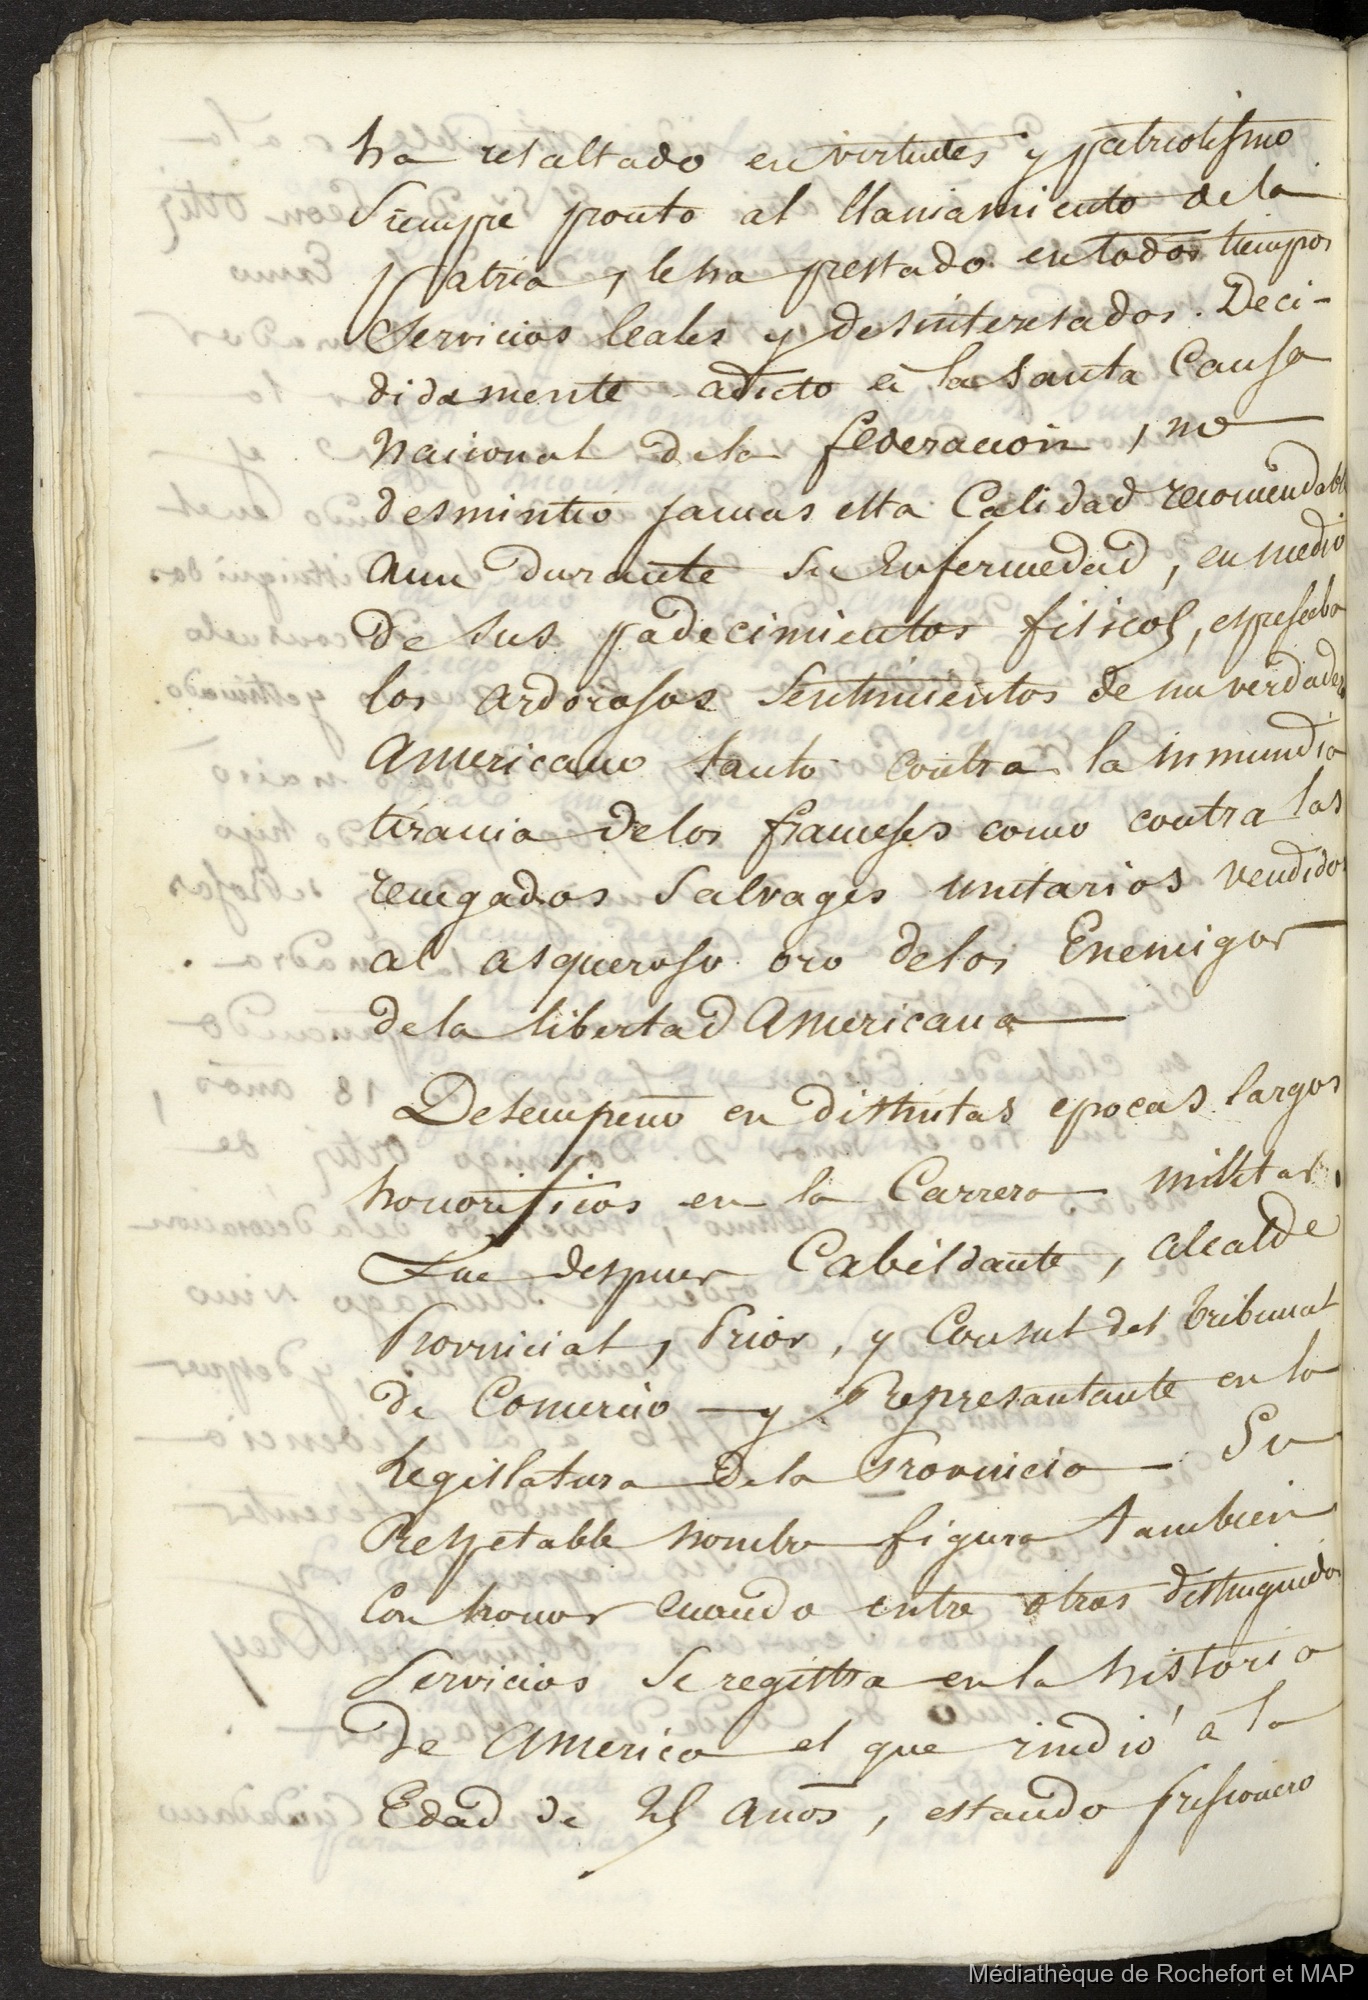 ha resaltado en virtudes y patriotismo
Siempre pronto al llamamiento dela
Patria, le ha prestado en todos tiempos
Servicios leales y desinteresados. Deci-
didamente adicto á la Santa Causa
Nacional dela federacion, no
desmintió jamas esta Calidad recomendable
aun durante su Enfermedad, en medio
de sus padecimientos fisicos, espresaba
los ardorosos Sentimientos de un verdadero
Americano tanto contra la inmundia
tirania delos franceses como contra los
renegados Salvages unitarios vendidos
al asqueroso oro delos Enemigos
dela libertad Americana
Desempeño en distintas epocas largos
honorificos en la Carrera militar,
Fue despues Cabildante, Alcalde
Provincial, Prior, y Consul del tribunal
de Comercio — y Representante en la
Legislatura dela Provincia — Su
Respetable nombre figura tambien
Con honor cuando entre otros distinguidos
Servicios se registra en la historia
de America el que rindió á la
Edad de 25 años, estando prisionero
Médiathèque de Rochefort et MAP